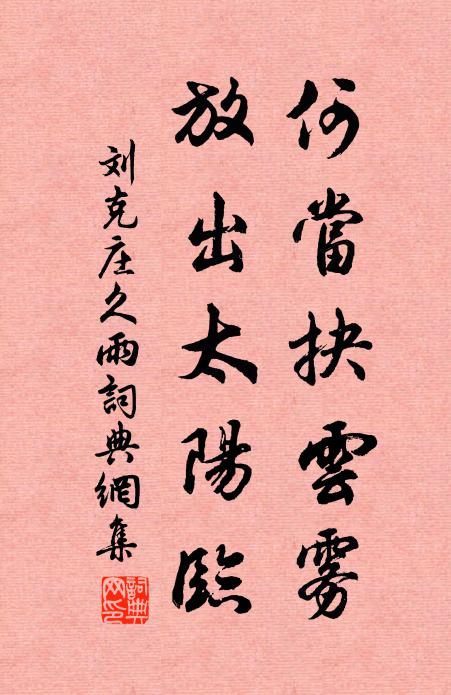 何當抉雲霧
放出太陽臨
刘克庄久雨詞典網集
詞典網印